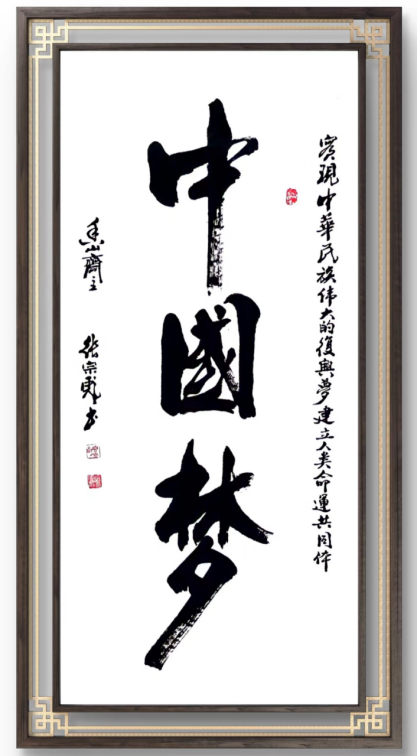 實現中華民族伟大的復興夢建立人类命運共同体
中國梦
山齋主 張宗 书